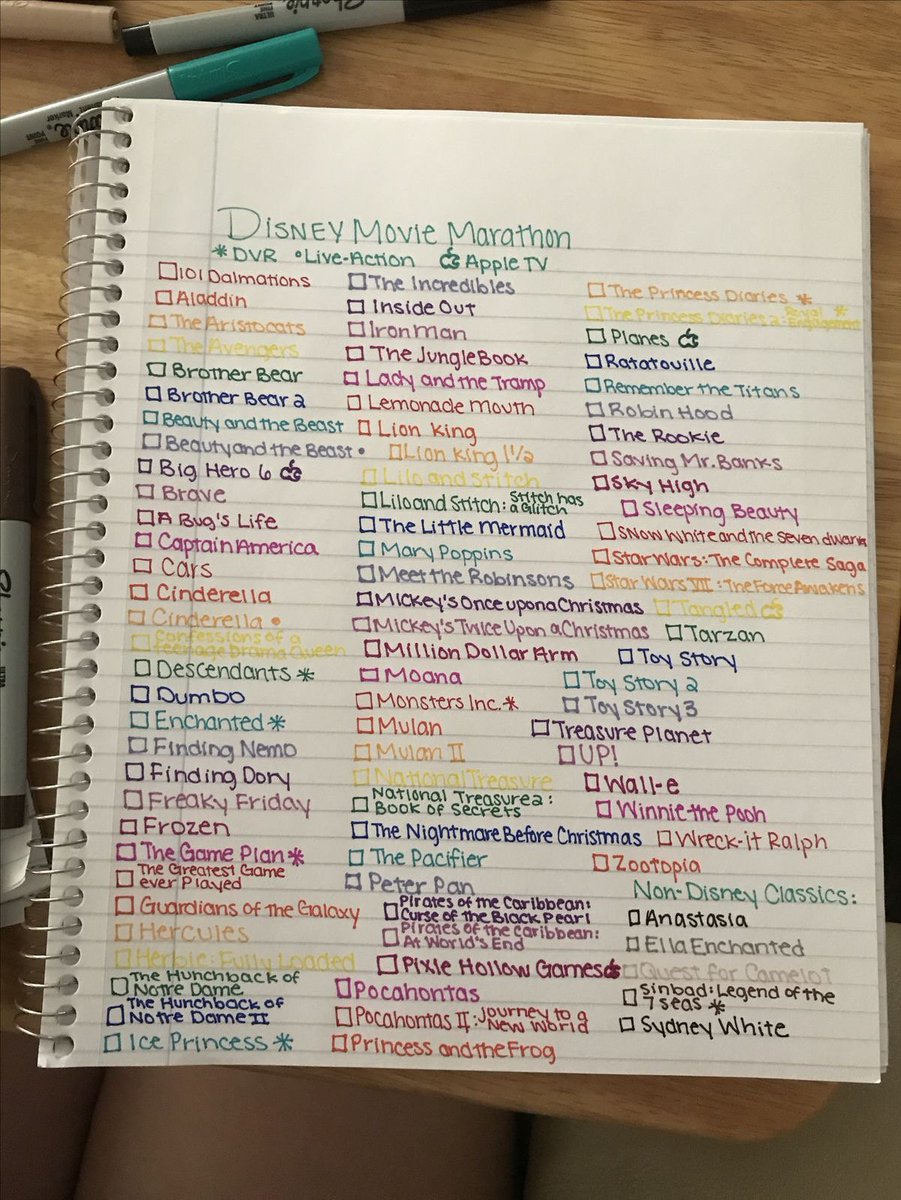 DISNEY Movie Marathon
*DVR •Live-Action Apple TV
101 Dalmations
Aladdin
The Aristocats
The Avengers
Brother Bear
Brother Bear 2
Beauty and the Beast
Beauty and the Beast •
Big Hero 6
Brave
A Bug's Life
Captain America
Cars
Cinderella
Cinderella •
Confessions of a
teenage Drama Queen
Descendants *
Dumbo
Enchanted *
Finding Nemo
Finding Dory
Freaky Friday
Frozen
The Game Plan *
The Greatest Game
ever Played
Guardians of the Galaxy
Hercules
Herbie: Fully Loaded
The Hunchback of
Notre Dame
The Hunchback of
Notre Dame II
Ice Princess *
The Incredibles
Inside Out
Iron man
The Jungle Book
Lady and the Tramp
Lemonade Mouth
Lion King
Lion King 1½
Lilo and Stitch
Lilo and Stitch: Stitch has
a Glitch
The Little Mermaid
Mary Poppins
Meet the Robinsons
Mickey's Once upon a Christmas
Mickey's Twice Upon a Christmas
Million Dollar Arm
Moana
Monsters Inc. *
Mulan
Mulan II
National Treasure
National Treasure 2:
Book of Secrets
The Nightmare Before Christmas
The Pacifier
Peter Pan
Pirates of the Caribbean:
Curse of the Black Pearl
Pirates of the Caribbean:
At World's End
Pixie Hollow Games
Pocahontas
Pocahontas II: Journey to a
New World
Princess and the Frog
The Princess Diaries *
The Princess Diaries 2: Royal *
Engagement
Planes
Ratatouville
Remember the Titans
Robin Hood
The Rookie
Saving Mr. Banks
Sky High
Sleeping Beauty
Snow White and the Seven dwarfs
Star Wars: The Complete Saga
Star Wars VII: The Force Awakens
Tangled
Tarzan
Toy Story
Toy Story 2
Toy Story 3
Treasure Planet
UP!
Wall-e
Winnie the Pooh
Wreck-it Ralph
Zootopia
Non-Disney Classics:
Anastasia
Ella Enchanted
Quest for Camelot
Sinbad: Legend of the
7 seas *
Sydney White